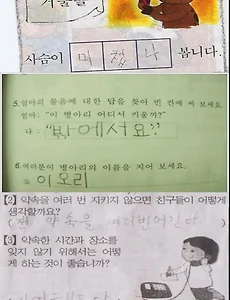 거울을
사슴이 미 쳤 나 봅니다.
5. 엄마의 물음에 대한 답을 찾아 빈 칸에 써 보세요.
엄마: “이 병아리 어디서 키울까?”
나: “밖에서요”
6. 여러분이 병아리의 이름을 지어 보세요.
이오리
[2] 약속을 여러 번 지키지 않으면 친구들이 어떻게
생각할까요?
( 약속을 여러번어긴다 )
[3] 약속한 시간과 장소를
잊지 않기 위해서는 어떻
게 하는 것이 좋습니까?